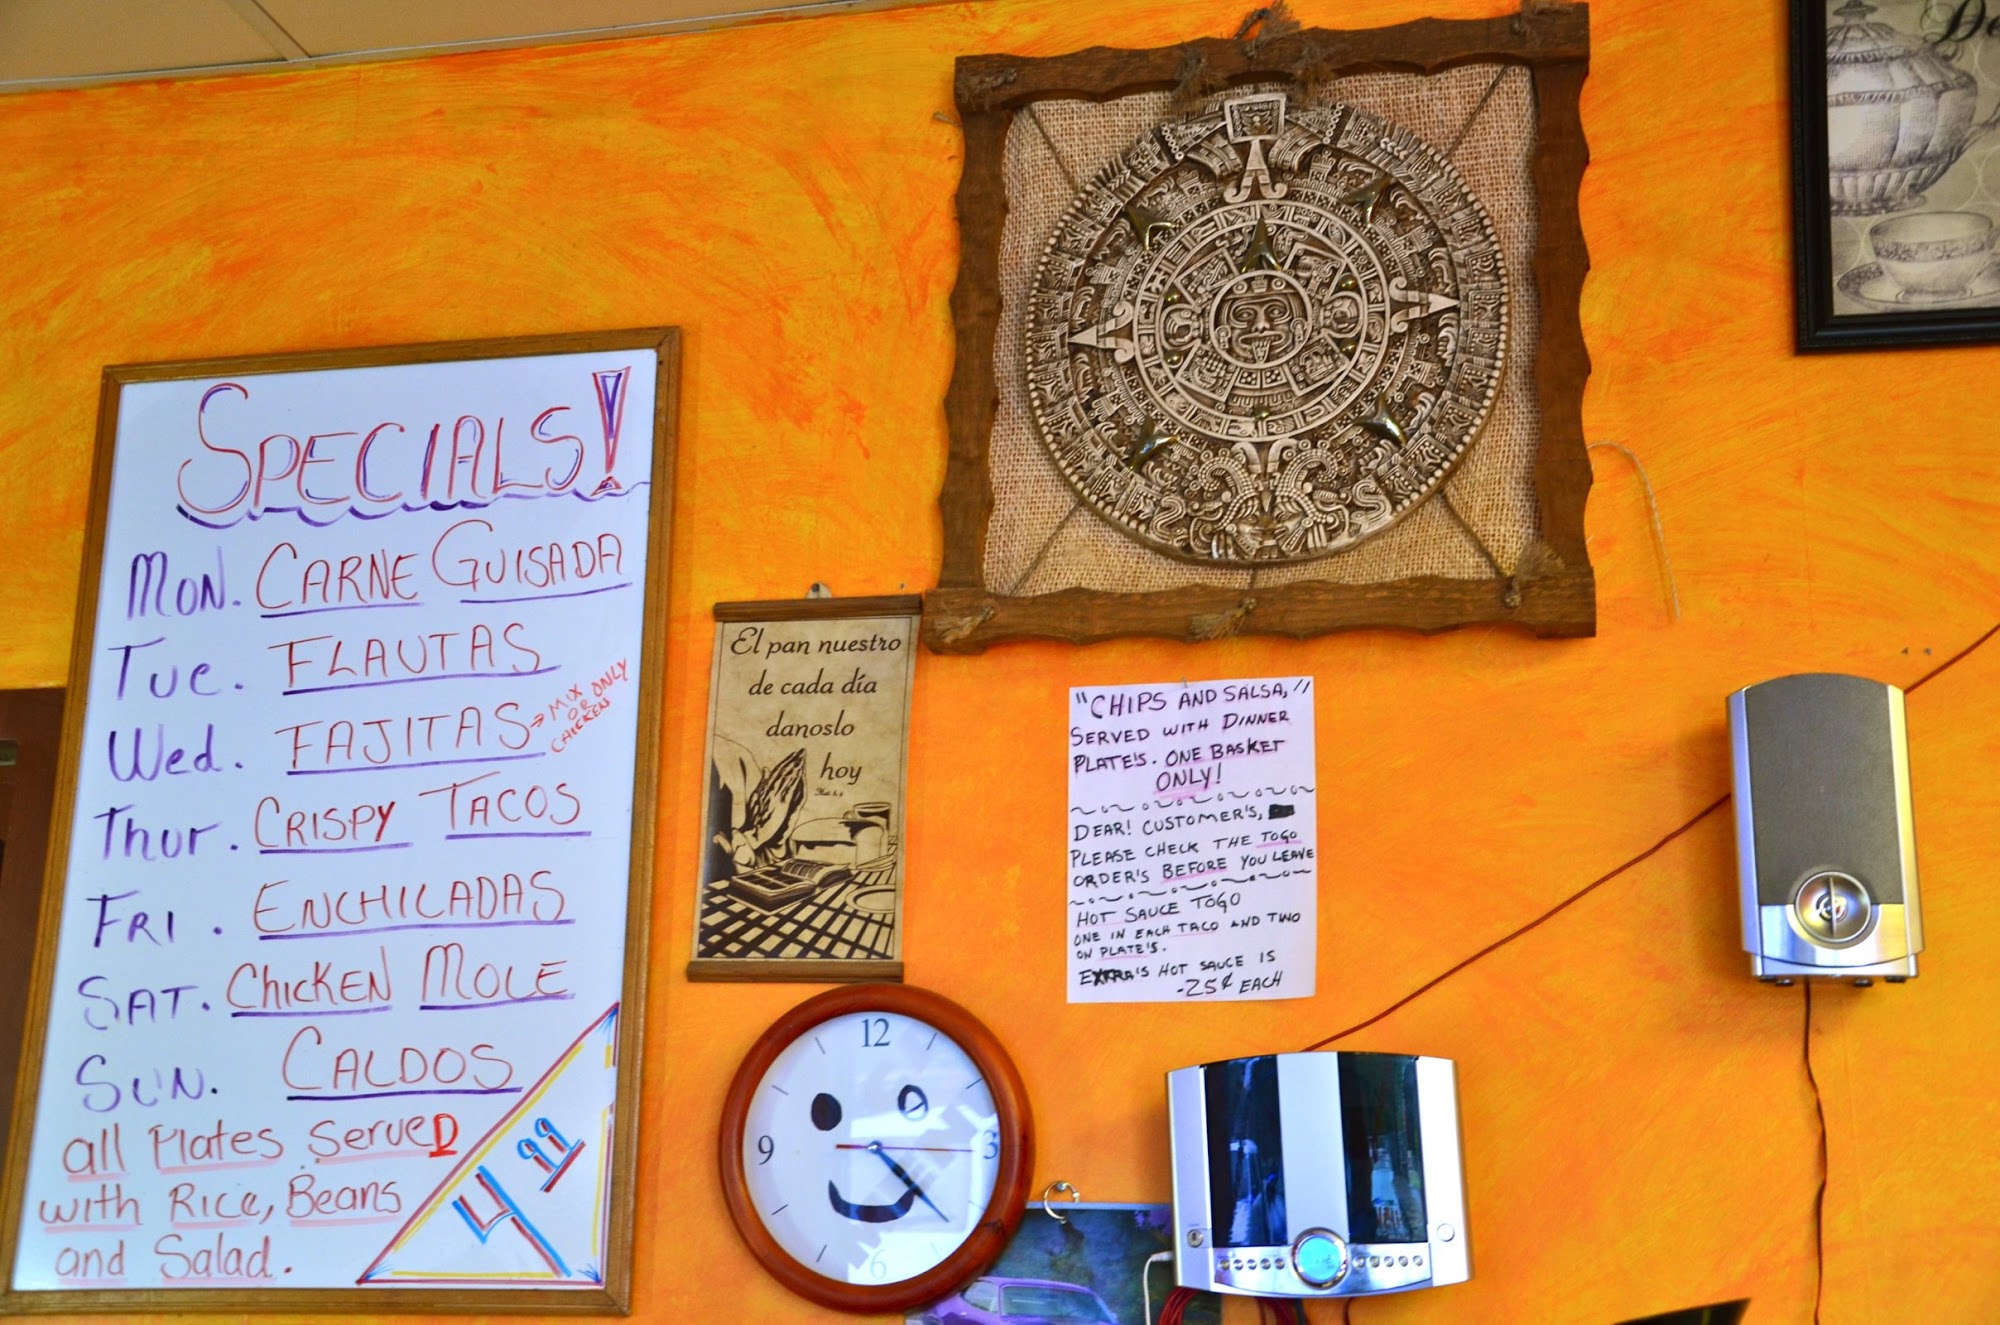 SPECIALS!
MON. CARNE GUISADA
Tue. FLAUTAS
Wed. FAJITAS → MIX OR ONLY CHICKEN
Thur. CRISPY TACOS
FRI. ENCHILADAS
SAT. ChicKEN MOLE
SUN. CALDOS
all Plates ServeD
with Rice, Beans
and Salad.
4 99
El pan nuestro
de cada día
danoslo
hoy
"CHIPS AND SALSA,"
SERVED WITH DINNER
PLATE'S. ONE BASKET
ONLY!
DEAR! CUSTOMER'S,
PLEASE CHECK THE TOGO
ORDER'S BEFORE YOU LEAVE
HOT SAUCE TOGO
ONE IN EACH TACO AND TWO
ON PLATE'S.
EXTRA'S HOT SAUCE IS
-25¢ EACH
12
9
3
6